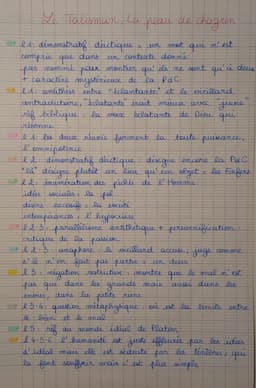 Le Talisman, La peau de chagrin
l 1: démonstratif déictique : un mot qui n'est
compris que dans un contexte donné
pas nommé pour montrer qu'ils ne sont qu'à deux
+ caractère mystérieux de la PdC
l 1: antithèse entre "éclatante" et le vieillard
contradictoire, "éclatante" irait mieux avec "jeune"
réf biblique : la voix éclatante de Dieu qui
résonne
l 1: les deux réunis forment la toute puissance,
l'omnipotence
l 2: démonstratif déictique, désigne encore la PdC
"là" désigne plutôt un lieu qu'un objet : les Enfers
l 2: énumération des péchés de l'Homme:
idées sociales: la
désirs excessifs: la
intempérances: l'
l 2-3: parallélisme antithétique + personnification
critique de la passion
l 2-3: anaphore: le vieillard accuse, juge comme
s'il n'en fait pas partie: un dieu
l 3: négation restrictive: montre que le mal n'est
pas que dans les grands mais aussi dans les
dans la petits riens
l 3-4: question métaphysique où est la limite entre
le bien et le mal
l 5: réf au monde idéal de Platon
l 4-5-6: l'humanité est juste effleurée par les idées
d'idéal mais elle est séduite par les ténèbres, qui
la font souffrir mais c'est plus simple